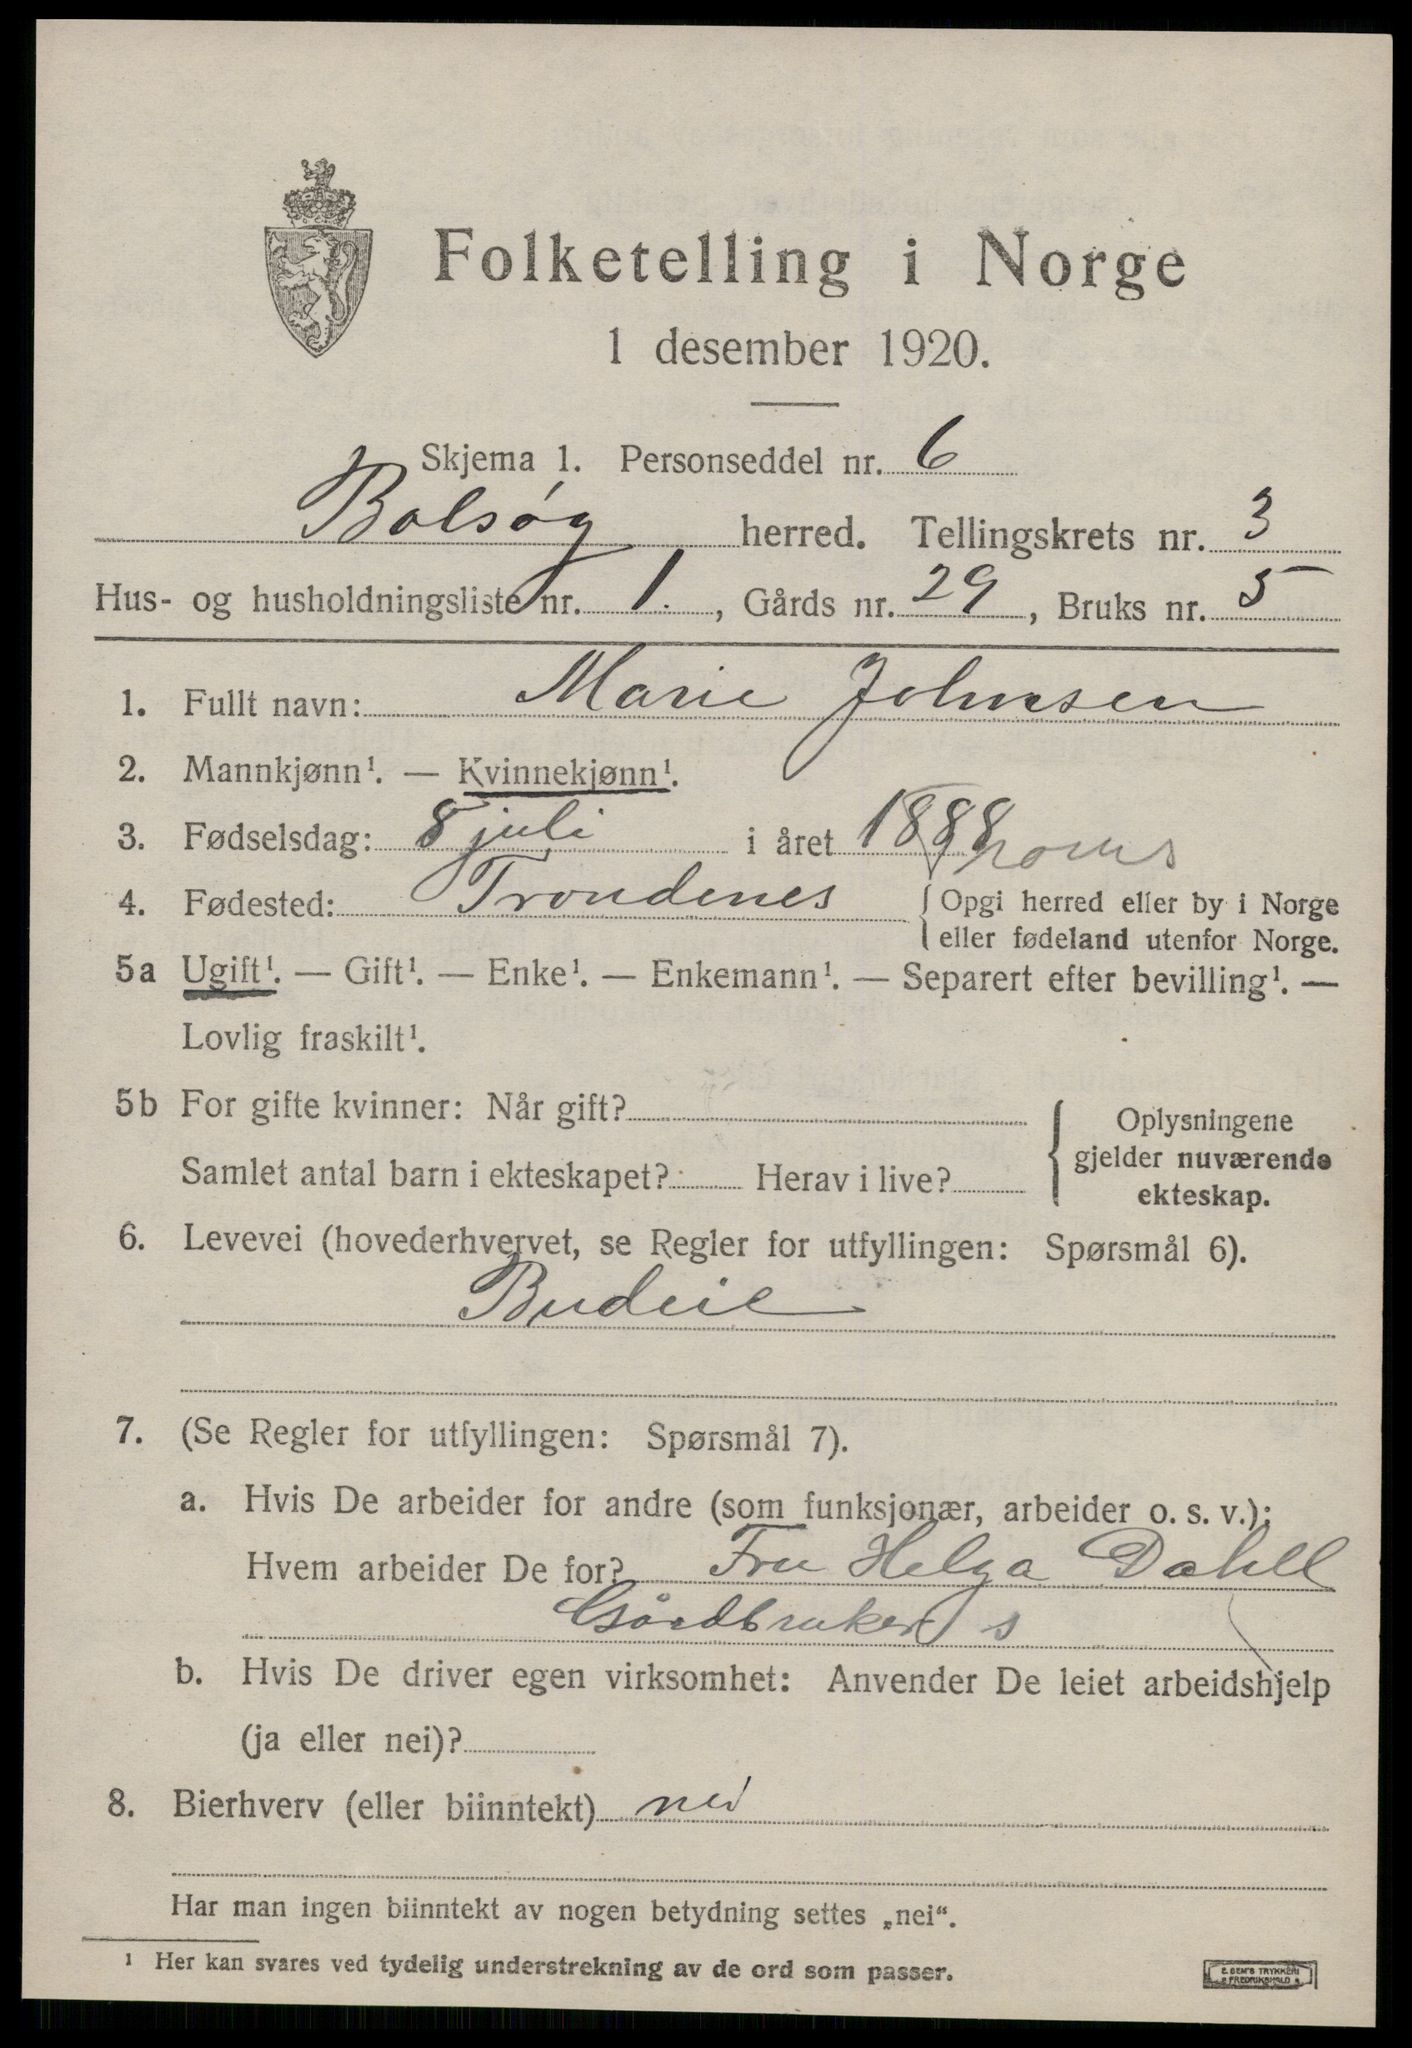 Folketelling i Norge
1 desember 1920.
Skjema 1. Personseddel nr. 6
Bolsøy herred. Tellingskrets nr. 3
Hus- og husholdningsliste nr. 1. , Gårds nr. 29 , Bruks nr. 5
1. Fullt navn: Marie Johnsen
2. Mannkjønn¹. — Kvinnekjønn¹.
3. Fødselsdag: 8 juli i året 1888
Troms
4. Fødested: Trondenes { Opgi herred eller by i Norge
eller fødeland utenfor Norge.
5a Ugift¹. — Gift¹. — Enke¹. — Enkemann¹. — Separert efter bevilling¹. —
Lovlig fraskilt¹.
5b For gifte kvinner: Når gift? { Oplysningene
gjelder nuværende
Samlet antal barn i ekteskapet? Herav i live?
ekteskap.
6. Levevei (hovederhvervet, se Regler for utfyllingen: Spørsmål 6).
Budeie
7. (Se Regler for utfyllingen: Spørsmål 7).
a. Hvis De arbeider for andre (som funksjonær, arbeider o. s. v.):
Hvem arbeider De for? Fru Helga Dahll
Gårdbruker s
b. Hvis De driver egen virksomhet: Anvender De leiet arbeidshjelp
(ja eller nei)?
8. Bierhverv (eller biinntekt) nei
Har man ingen biinntekt av nogen betydning settes „nei“.
¹ Her kan svares ved tydelig understrekning av de ord som passer.
E. SEM'S TRYKKERI
FREDRIKSHALD